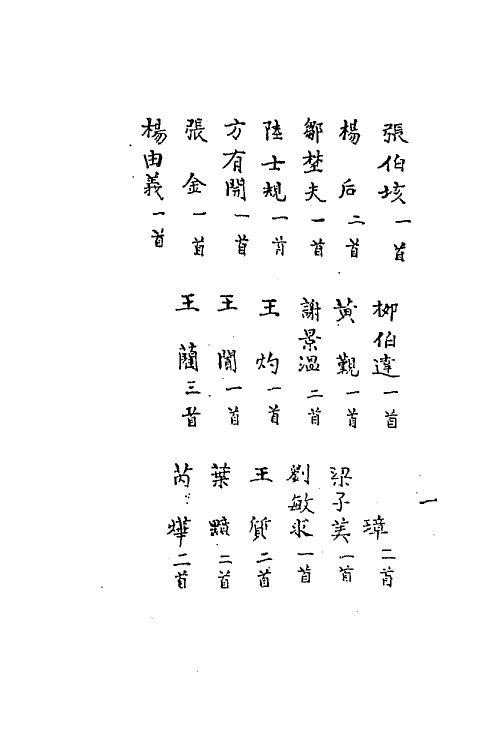 一
張伯垓一首 柳伯達一首 璋二首
楊后二首 黃覲一首 梁子美一首
鄒埜夫一首 謝景溫二首 劉敏求一首
陸士規一首 王灼一首 王質二首
方有開一首 王一首 葉二首
張金一首 王藺三首 芮燁二首
楊由義一首